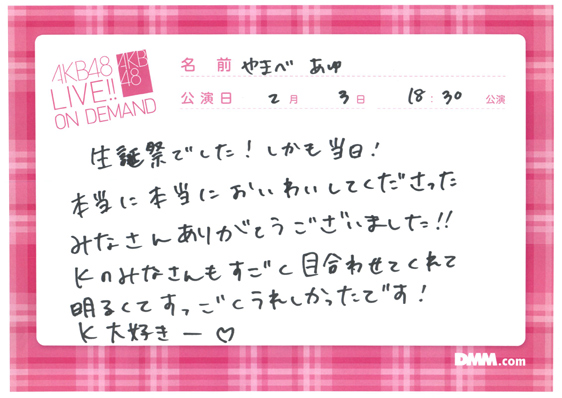 AKB48
LIVE!!
ON DEMAND
AKB
48
名 前 やまべ あゆ
公演日 2月 3日 18:30 公演
生誕祭でした!しかも当日!
本当に本当においわいしてくださった
みなさんありがとうございました!!
Kのみなさんもすごく目合わせてくれて
明るくてすっごくうれしかったです!
K大好きー♡
DMM.com